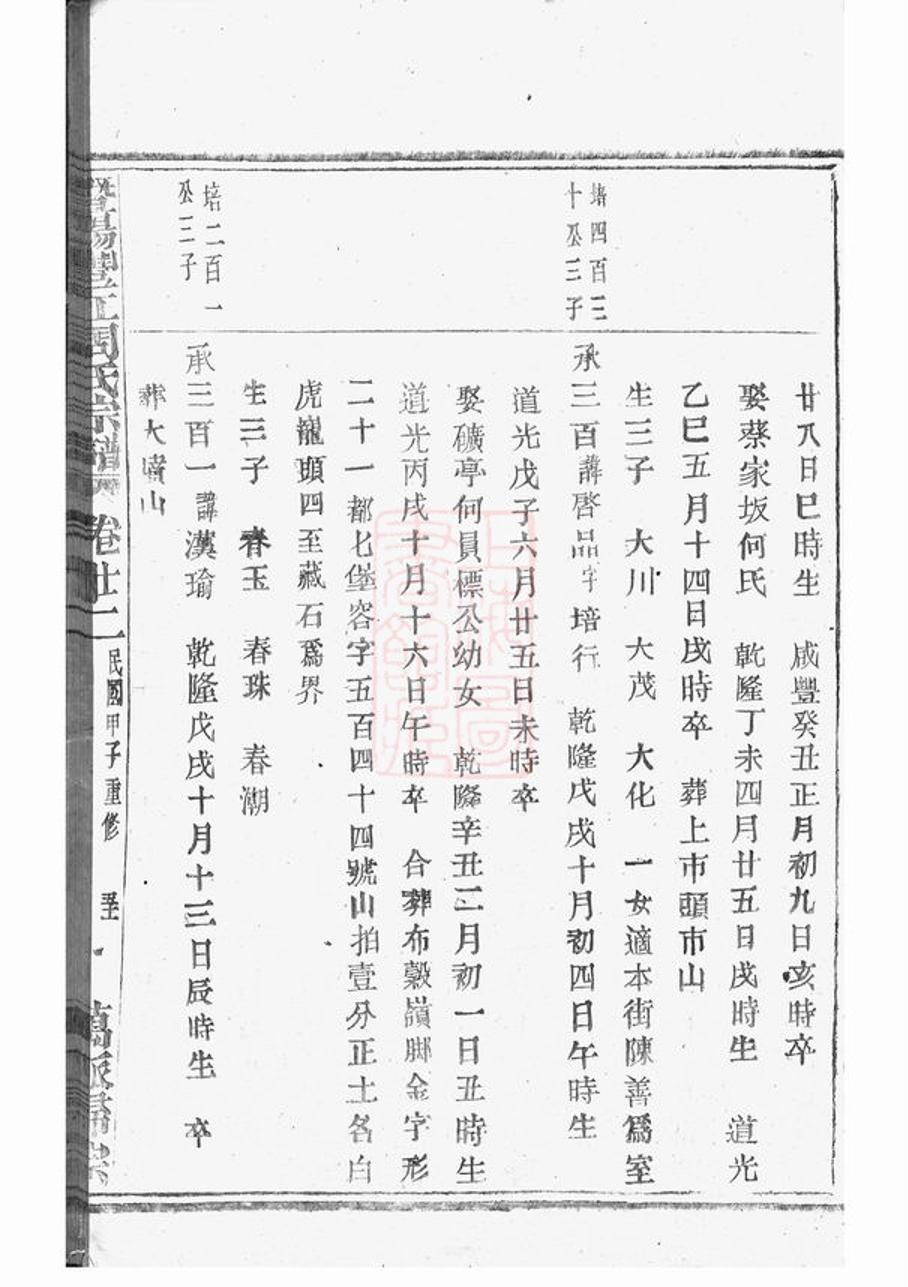 廿八日巳時生 咸豐癸丑正月初九日亥時卒
娶蔡家坂何氏 乾隆丁未四月廿五日戌時生 道光
乙巳五月十四日戌時卒 葬上市頭市山
生三子 大川 大茂 大化 一女適本街陳善為室
培四百三
十公三子
承三百諱啓品字培行 乾隆戊戌十月初四日午時生
道光戊子六月廿五日未時卒
娶礦亭何員標公幼女 乾隆辛丑二月初一日丑時生
道光丙戌十月十六日午時卒 合葬布穀嶺脚金字形
二十一都匕堡容字五百四十四號山拍壹分正土名白
虎龍頭四至藏石為界
生三子 春玉 春珠 春潮
培二百一
公三子
承三百一諱漢瑜 乾隆戊戌十月十三日辰時生 卒
葬大嶺山
暨陽豐江周氏宗譜 卷廿二 民國甲子重修